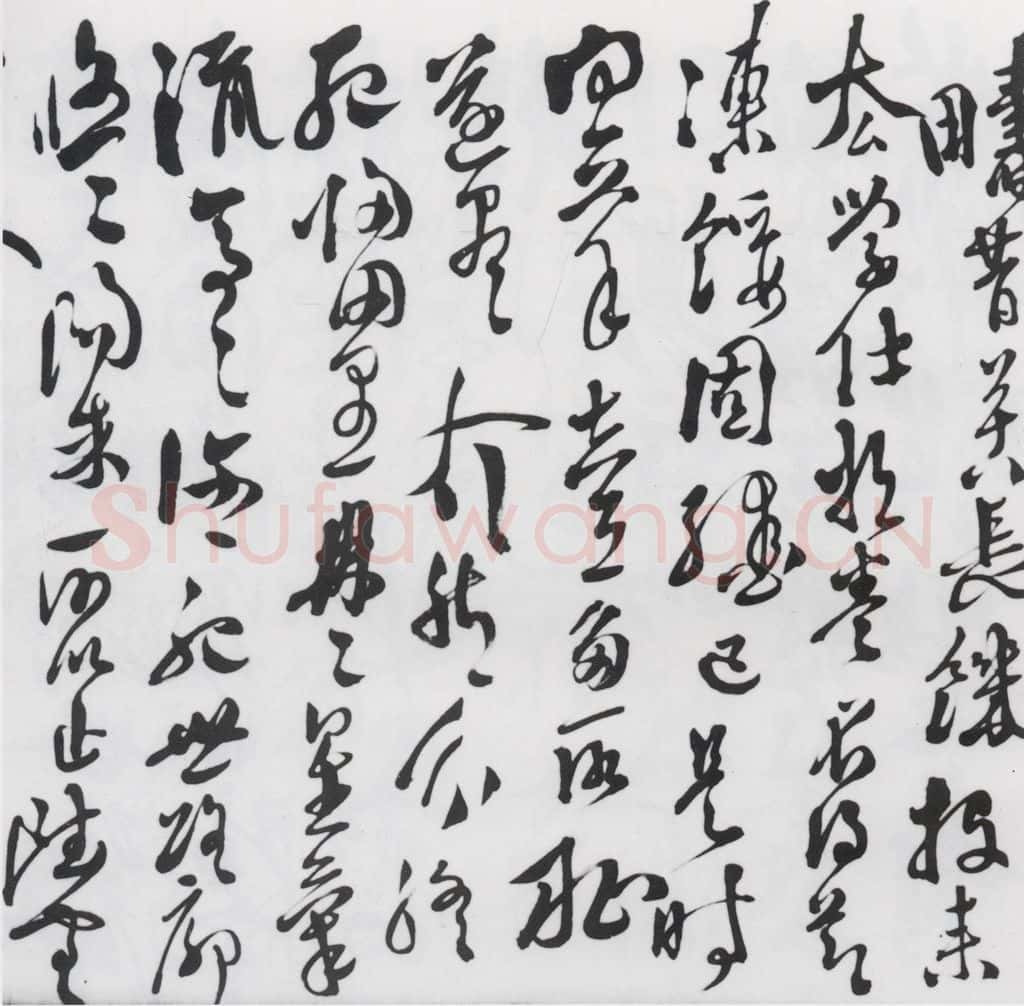 疇昔苦長饑投耒
去學仕將養不得節
凍餒固纏己是時
向立年志意多所恥
遂盡介然分終
死歸田里冉冉星氣
流亭亭復一紀世路廓
悠悠楊朱所以止雖無
Shufawang.CN